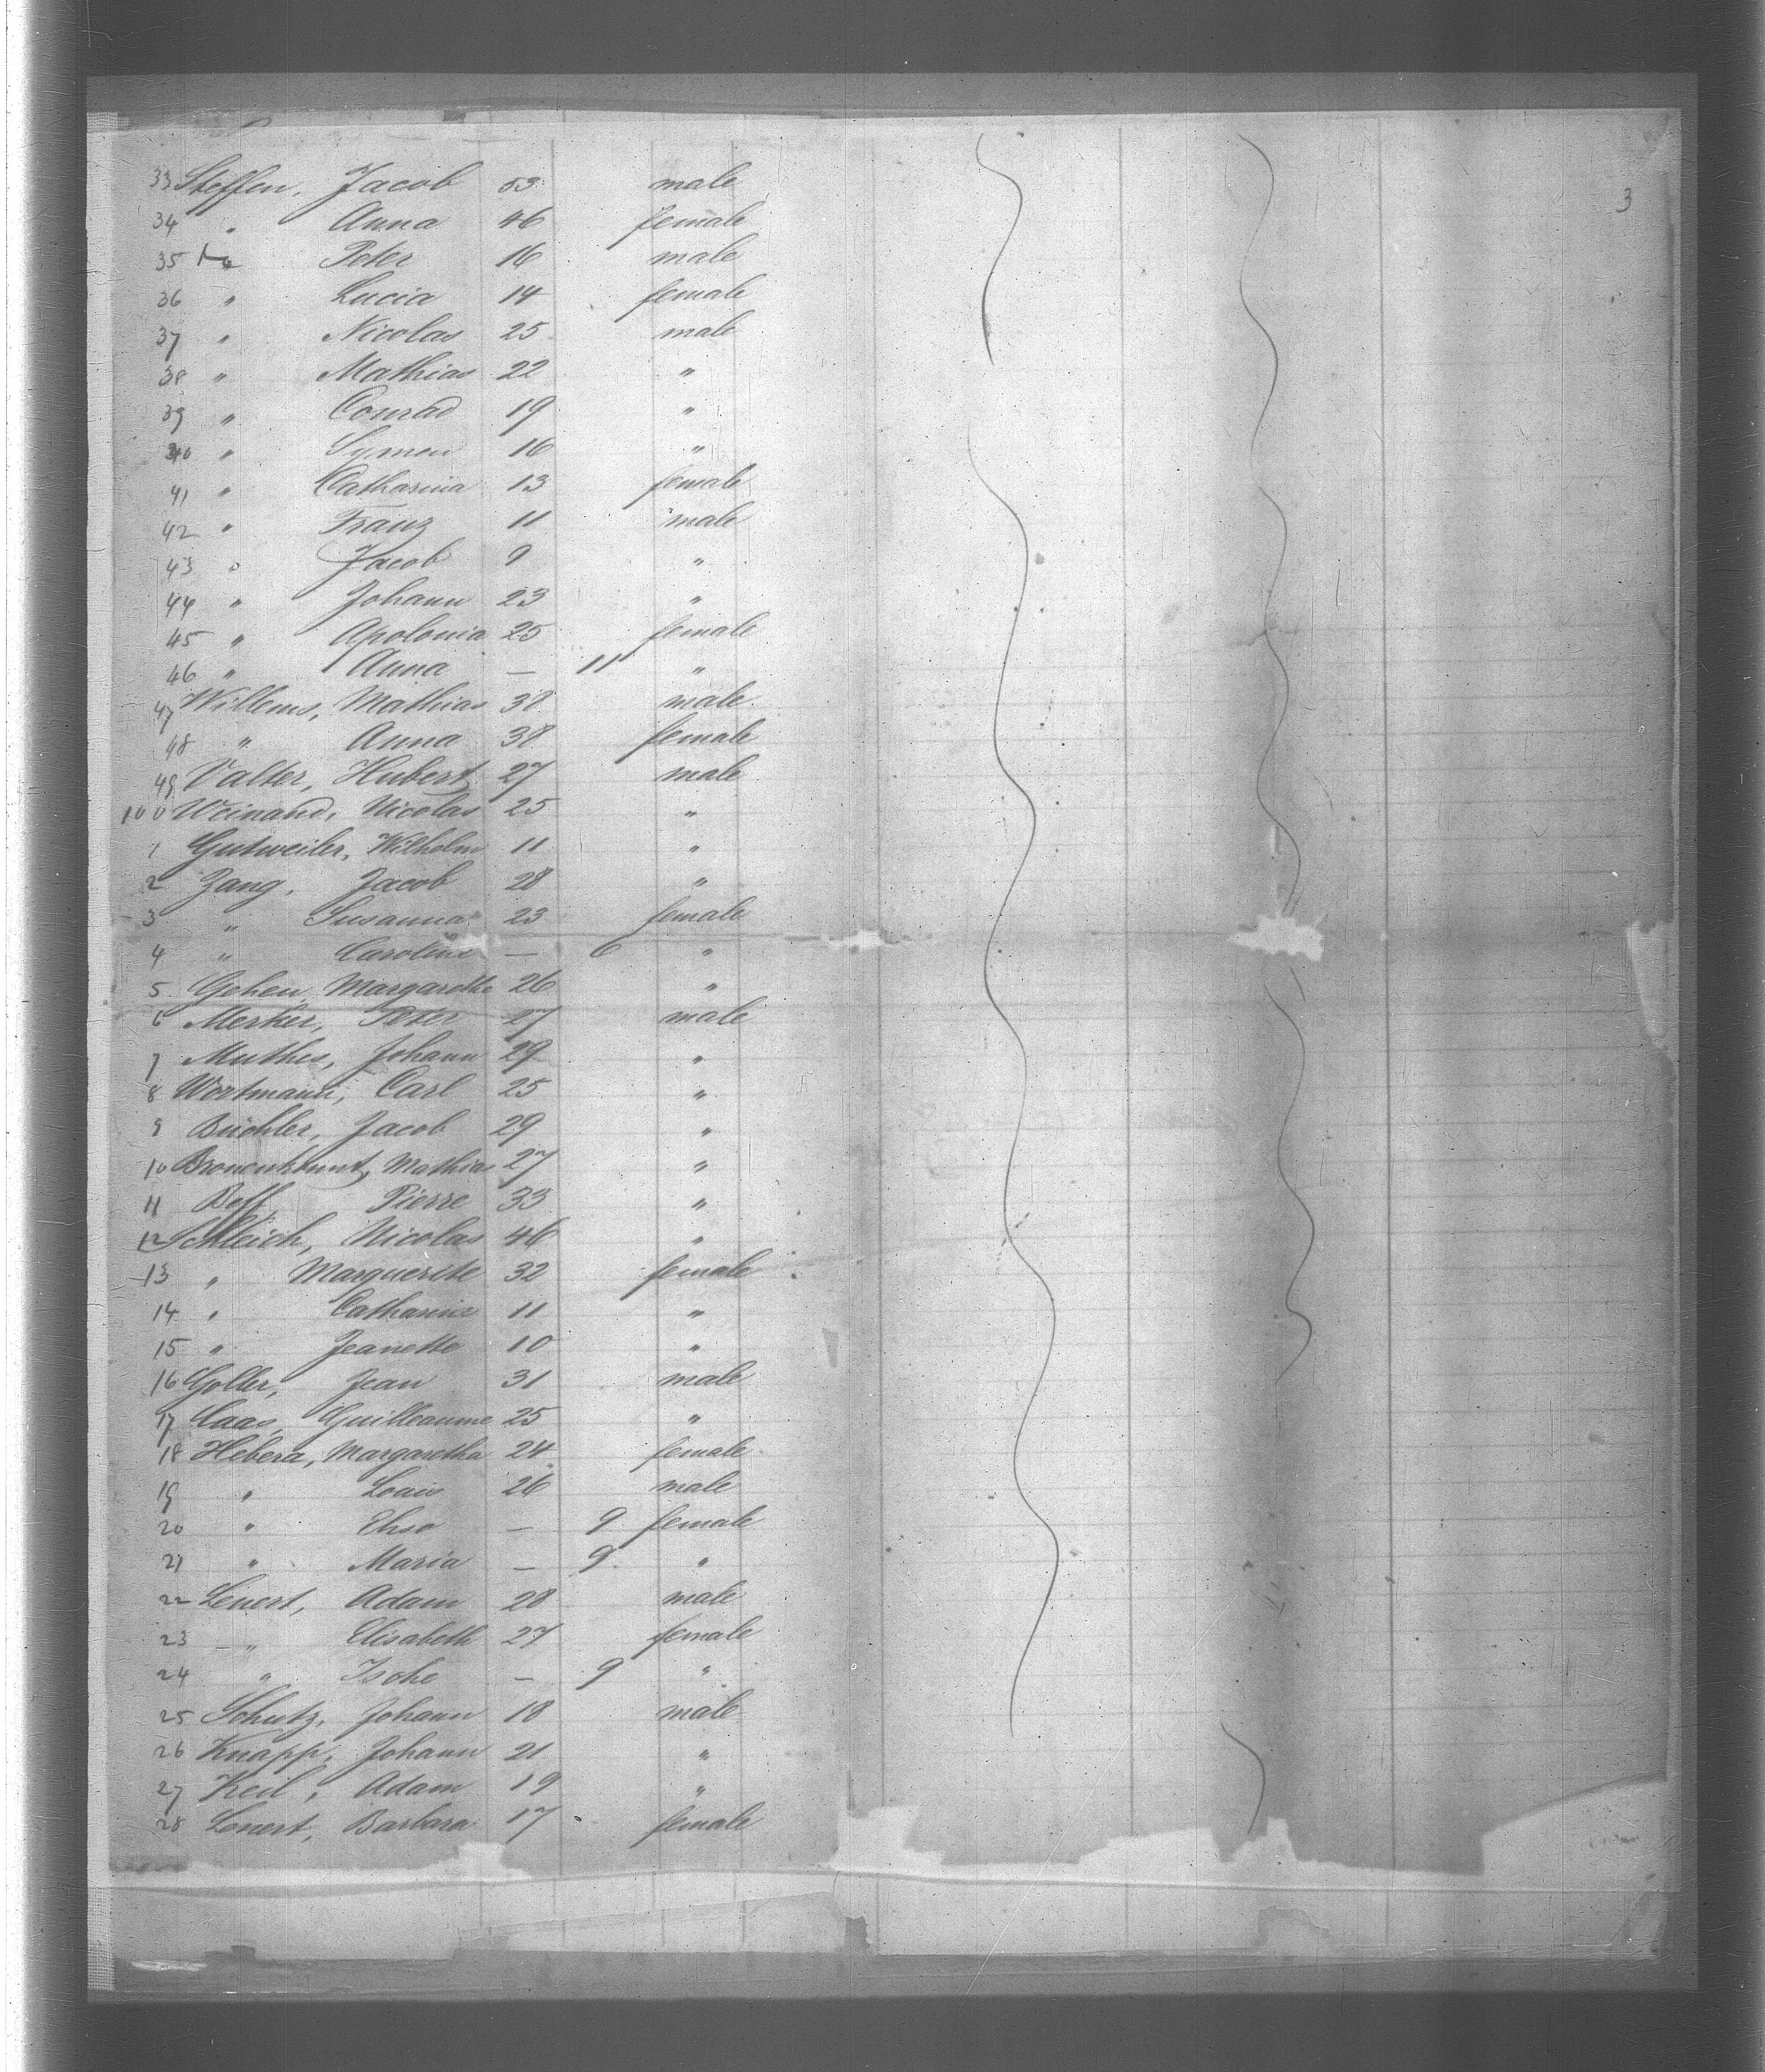 3
33 Steffen, Jacob 53 male
34 " Anna 46 female
35 " Peter 16 male
36 " Lucia 14 female
37 " Nicolas 25 male
38 " Mathias 22 "
39 " Conrad 19 "
40 " Symon 16 "
41 " Catharina 13 female
42 " Franz 11 male
43 " Jacob 9 "
44 " Johann 23 "
45 " Apolonia 25 female
46 " Anna — 11 "
47 Willems, Mathias 38 male
48 " Anna 38 female
49 Valter, Hubert 27 male
100 Weinand, Nicolas 25 "
1 Gutweiler, Wilhelm 11 "
2 Zang, Jacob 28 "
3 " Susanna 23 female
4 " Caroline — 6 "
5 Gehen, Margarethe 26 "
6 Merker, Peter 27 male
7 Muthes, Johann 29 "
8 Wortmann, Carl 25 "
9 Büchler, Jacob 29 "
10 Mathias 27 "
11 Pierre 33 "
12 Schleich, Nicolas 46 "
13 " Marguerite 32 female
14 " Catharine 11 "
15 " Jeanette 10 "
16 Goller, Jean 31 male
17 Caas, Guilleaume 25 "
18 Hebera, Margaretha 24 female
19 " Louis 26 male
20 " Elise — 9 female
21 " Maria — 9 "
22 Lenert, Adam 28 male
23 " Elisabeth 27 female
24 " — 9 "
25 Schutz, Johann 18 male
26 Knapp, Johann 21 "
27 Keil, Adam 19 "
28 Lonert, Barbara 17 female